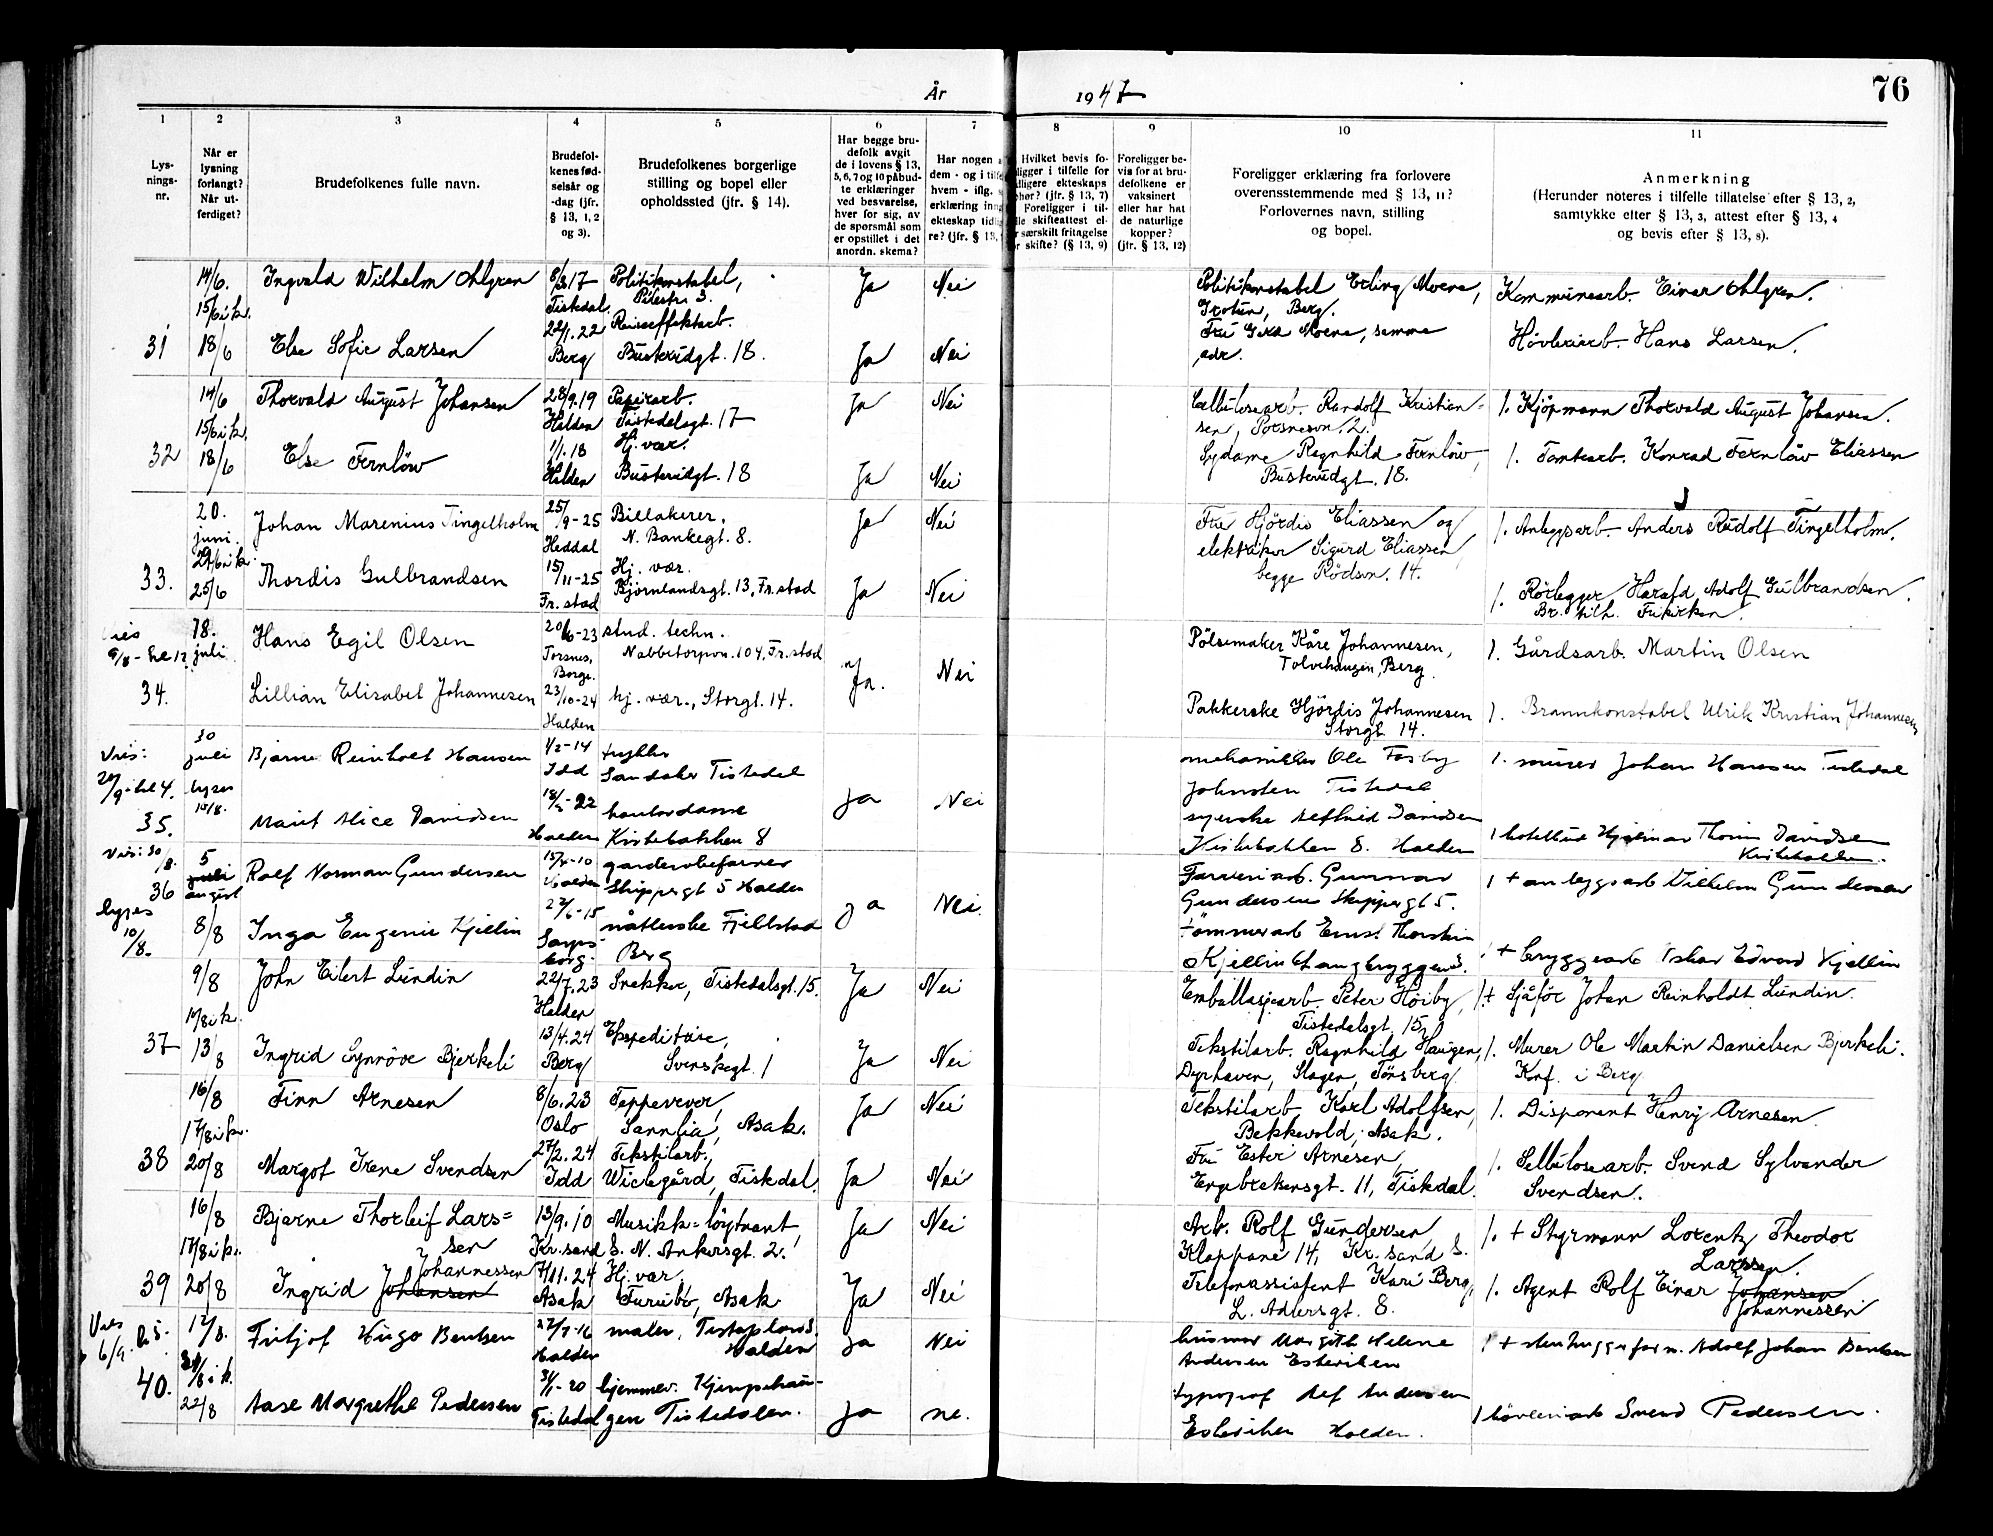 År 1947
76
1 2 3 4 5 6 7 8 9 10 11
Lys-
nings-
nr.
Når er
lysning
forlangt?
Når ut-
ferdiget?
Brudefolkenes fulle navn.
Brudefol-
kenes fød-
selsår og
-dag (jfr.
§ 13, 1, 2
og 3).
Brudefolkenes borgerlige
stilling og bopel eller
opholdssted (jfr. § 14).
Har begge bru-
defolk avgit
de i lovens § 13,
5, 6, 7 og 10 påbud-
te erklæringer
ved besvarelse,
hver for sig, av
de spørsmål som
er opstillet i det
anordn. skema?
Har nogen a
dem - og i tilfe
hvem - iflg. s
erklæring inng
ekteskap tidli
re? (jfr. § 13,
Hvilket bevis fo-
ligger i tilfelle for
dligere ekteskaps
phør? (jfr. § 13, 7)
Foreligger i til-
lle skifteattest el-
r særskilt fritagelse
or skifte? (§ 13, 9)
Foreligger be-
vis for at bru-
defolkene er
vaksinert
eller har hat
de naturlige
kopper?
(jfr. § 13, 12)
Foreligger erklæring fra forlovere
overensstemmende med § 13, 11?
Forlovernes navn, stilling
og bopel.
Anmerkning
(Herunder noteres i tilfelle tillatelse efter § 13, 2,
samtykke efter § 13, 3, attest efter § 13, 4
og bevis efter § 13, 8).
31
14/6.
15/6 i k.
18/6
Ingvald Wilhelm Ohlgren
8/3.17
Tistedal
Politikonstabel,
Pilestr. 3.
Ja Nei
Politikonstabel Erling Moene,
Grotun, Berg.
Kommunearb. Einar Ohlgren.
Else Sofie Larsen
22/1.22
Berg
Reiseeffektarb.
Busterudgt. 18.
Ja Nei
Fru Gerd Moene, samme
adr.
Høvleriarb. Hans Larsen.
32
14/6
15/6 i k.
18/6
Thorvald August Johansen
28/9.19
Halden
Papirarb.
Tistedalsgt. 17
Ja Nei
Cellulosearb. Randolf Kristian-
sen, Torsnesvn. 2.
1. Kjøpmann Thorvald August Johansen.
Else Fernløw
1/1.18
Halden
Hj. vær.
Busterudgt. 18
Ja Nei
Sydame Ragnhild Fernløw,
Busterudgt. 18.
1. Tomtearb. Konrad Fernløw Eliassen
33.
20.
juni.
22/6 i k.
25/6
Johan Marenius Tingelholm
25/9-25
Heddal
Billakerer.
N. Bankegt. 8.
Ja Nei
Fru Hjördis Eliassen og
elektriker Sigurd Eliassen,
begge Rødsvn. 14.
1. Anleggsarb. Anders Rudolf Tingelholm.
Thordis Gulbrandsen
15/11-25
Fr.stad
Hj. vær.
Bjørnlandsgt. 13, Fr.stad
Ja Nei
1. Rørlegger Harald Adolf Gulbrandsen.
Br. tilh. Frikirken.
Vies
9/8-kl 17
34.
18.
juli
Hans Egil Olsen
20/6-23
Torsnes,
Borge.
stud. techn.
Nabbetorpvn. 104, Fr.stad
Ja. Nei
Pölsemaker Kåre Johannesen,
Tolvehaugen, Berg.
1. Gårdsarb. Martin Olsen
Lillian Elisabet Johannesen
23/10-24
Halden
hj. vær., Storgt. 14.
Pakkerske Hjördis Johannesen
Storgt. 14.
1. Brannkonstabel Ulrik Kristian Johannesen
Vies:
20/9-kl 4.
35.
30
juli
lyses
10/8.
Bjarne Reinholt Hansen
1/2-14
Idd
trykker
Sandaker Tistedal
ja Nei
mekaniker Ole Fosby
Johnsten Tistedal
1. murer Johan Hansen Tistedal
Marit Alice Davidsen
18/2-22
Halden
kontordame
Kirkebakken 8
syerske Asthild Davidsen
Kirkebakken 8. Halden
1 hotelbud Hjalmar Thorin Davidsen
Kirkebakken.
Vies: 30/8.
36
lyses
10/8.
5
juli
august
8/8
Rolf Norman Gundersen
15/8-10
Halden
garderobefarver
Skippergt 5 Halden
ja Nei.
Farveriarb. Gunnar
Gundersen Skippergt 5.
1 + anleggsarb Vilhelm Gundersen
Inga Eugenie Kjellin
27/6-15
Sarps-
borg.
nåtlerske Fjellstad
Berg
tømmerarb Ernst Thorstein
Kjellin Langbryggens.
1 + bryggearb Oskar Edvard Kjellin
37
9/8
10/8 i k.
13/8
John Eilert Lundin
22/7.23
Halden
Snekker, Tistedalsgt. 15.
Ja Nei
Emballasjearb. Peter Höiby,
Tistedalsgt. 15.
1. + Sjåfør Johan Reinholdt Lundin.
Ingrid Synnöve Bjerkeli
13/4.24
Berg
Ekspeditrise,
Svenskegt. 1
Ja Nei
Tekstilarb. Ragnhild Haugen,
Dyrhaven, Slagen, Tönsberg.
1. Murer Ole Martin Danielsen Bjerkeli.
Konf. i Berg
38
16/8
17/8 i k.
20/8
Finn Arnesen
8/6.23
Oslo
Teppevever,
Sannlia, Asak.
Ja Nei
Tekstilarb. Karl Adolfsen,
Bekkevold, Asak.
1. Disponent Henry Arnesen.
Margot Irene Svendsen
27/2.24
Idd
Tekstilarb.,
Wielegård, Tistedal.
Ja Nei
Fru Ester Arnesen,
Engebrektsensgt. 11, Tistedal.
1. Sellulosearb. Svend Sylvander
Svendsen.
39
16/8
17/8 i k.
20/8
Bjarne Thorleif Lars=
sen
13/9.10
Kr.sand S.
Musikk=løytnant,
N. Ankersgt. 2.
Ja Nei
Arb. Rolf Gundersen,
Klappane 14, Kr.sand S.
1. + Styrmann Lorentz Theodor
Larssen.
Ingrid Johansen
Johannessen
7/11.24
Asak
Hj. vær.
Furubo, Asak
Ja Nei
Telefonassistent Kari Berg,
L. Adlersgt. 8.
1. Agent Rolf Einar Johansen
Johannessen
Vies
6/9. kl 5.
40.
12/8.
22/8
Fritjof Hugo Bentsen
27/7-16
Halden
maler, Tistaplass
Halden
ja Nei
husmor Margith Helene
Andersen Esterikken
1 + stenhuggerform. Adolf Johan Bentsen
Aase Margrethe Pedersen
31/1-20
Tistedal
hjemmev. Kjempehau-
gen Tistedalen.
ja ne.
typograf Alf Andersen
Halden.
1 høvleriarb Svend Pedersen.